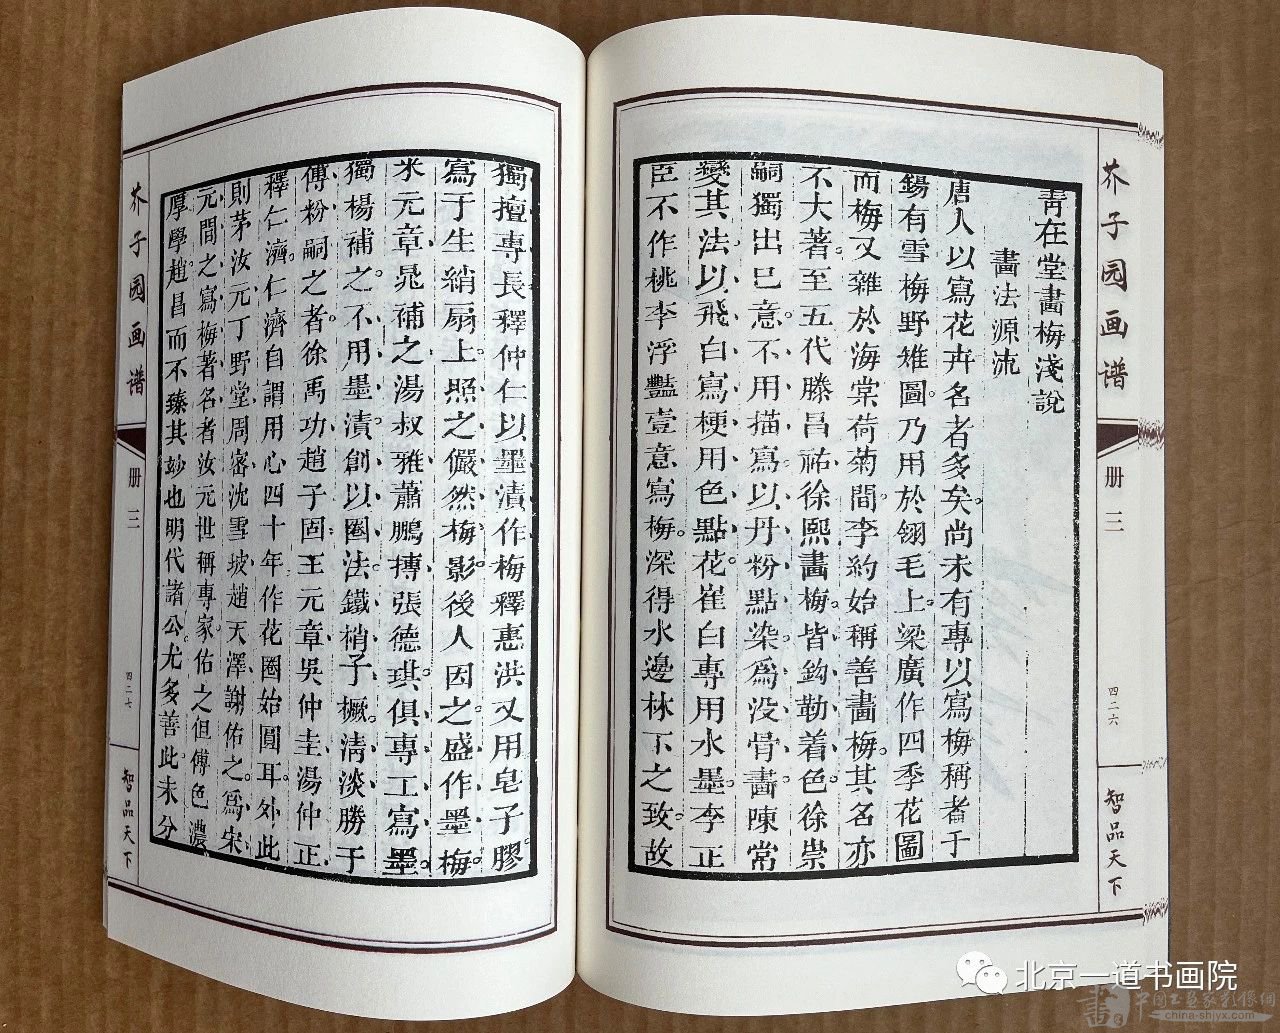 芥子园画谱
册三
四二六
智品天下
青在堂畫梅淺說
畫法源流
唐人以寫花卉名者多矣尚未有專以寫梅稱者于
錫有雪梅野雉圖乃用於翎毛上梁廣作四季花圖
而梅又雜於海棠荷菊間李約始稱善畫梅其名亦
不大著至五代滕昌祐徐熙畫梅皆鈎勒着色徐崇
嗣獨出巳意不用描寫以丹粉點染為没骨畫陳常
變其法以飛白寫梗用色點花崔白專用水墨李正
臣不作桃李浮豔壹意寫梅深得水邊林下之致故
獨擅專長釋仲仁以墨漬作梅釋惠洪又用皂子膠
寫于生綃扇上照之儼然梅影後人因之盛作墨梅
米元章晁補之湯叔雅蕭鵬摶張德琪俱專工寫墨
獨楊補之不用墨漬創以圈法鐵梢子橛清淡勝于
傅粉嗣之者徐禹功趙子固王元章吳仲圭湯仲正
釋仁濟仁濟自謂用心四十年作花圈始圓耳外此
則茅汝元丁野堂周密沈雪坡趙天澤謝佑之為宋
元間之寫梅著名者汝元世稱專家佑之但傅色濃
厚學趙昌而不臻其妙也明代諸公尤多善此未分
芥子园画谱
册三
四二七
智品天下
北京一道书画院
中国工艺家影像網
china-shjyx.com